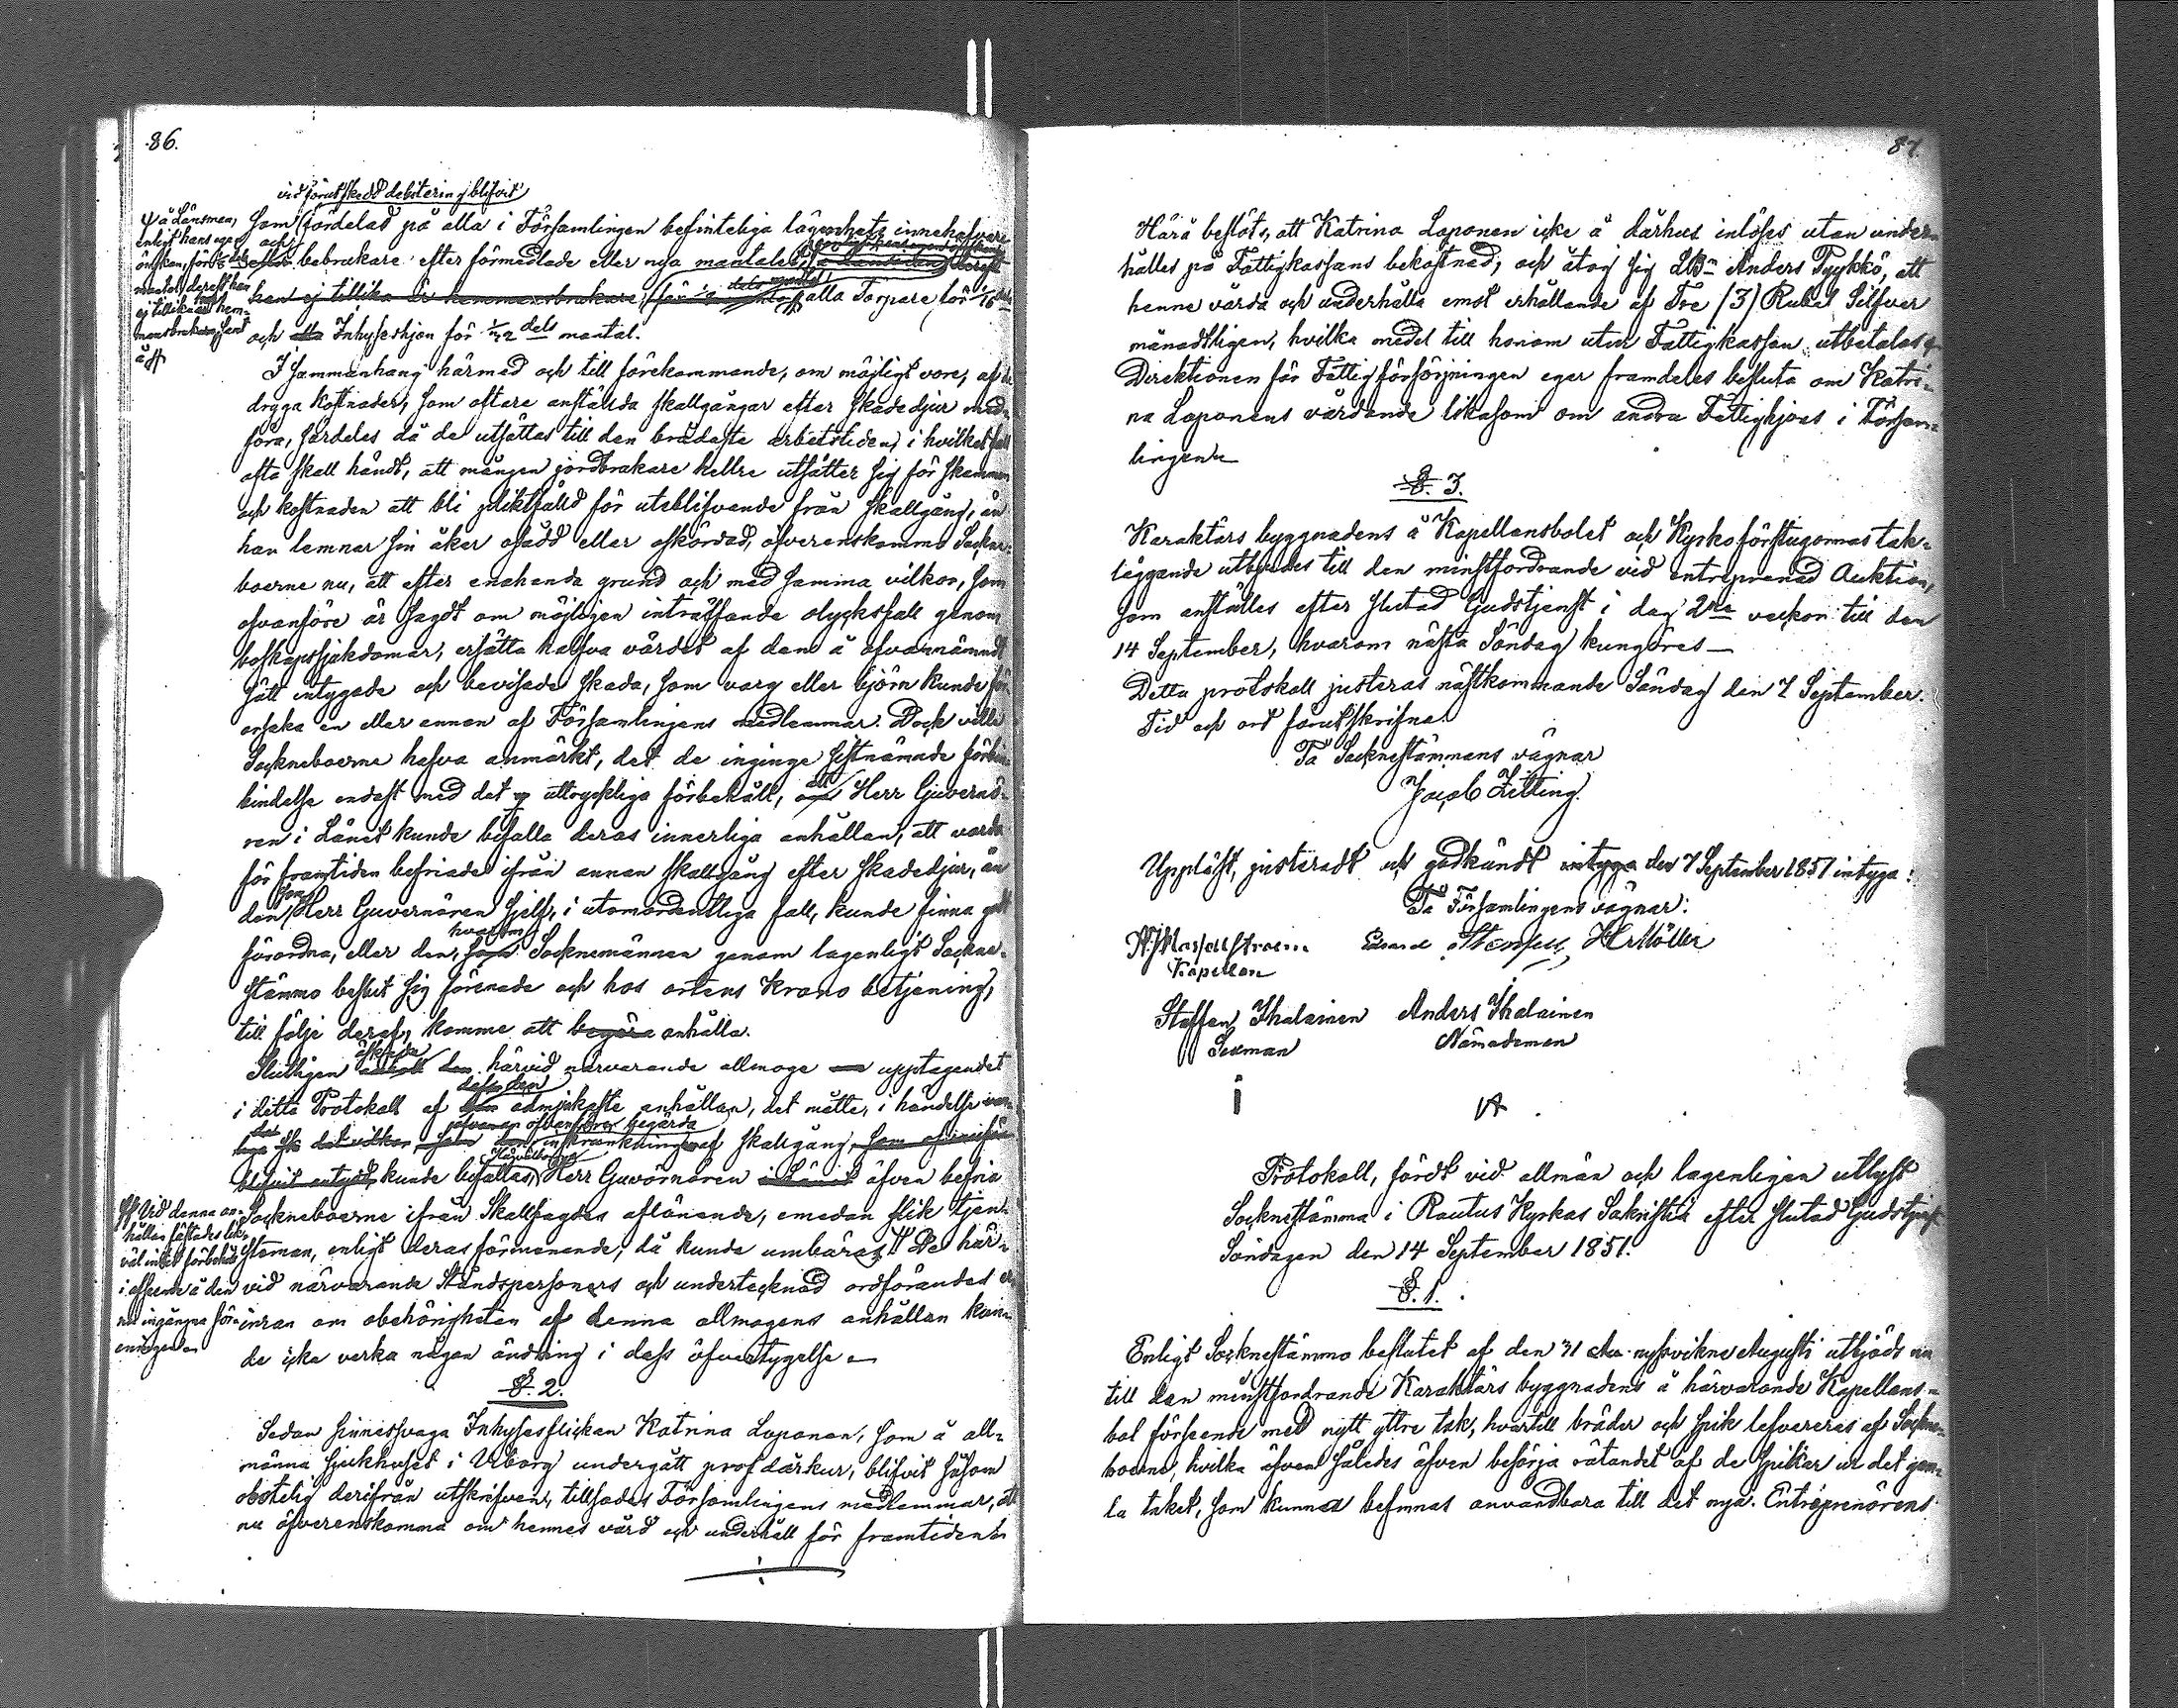 86.
vid förut skedd debitering blifvit
som fördelad på alla i Församlingen befinteliga lägenhets innehafvare
och efter bebrukare efter förmedlade eller nya mantalet,
han ej tillika är hemmansbrukare, för dels mantal alla Torpare för 1/16
och alla Inhyseshjon för 1/32 dels mantal.
å Länsman,
enligt hans egen
önskan, för
mantal, derest han
ej tillika är hem-
mansbrukare, samt
å
I sammanhang härmed och till förekommande, om möjligt vore, af de
dryga kostnader, som oftare anstälda skallgångar efter skadedjur med-
föra, särdeles då de utsättas till den brådaste arbetstiden, i hvilket fall
ofta skall händt, att mången jordbrukare hellre utsätter sig för skammen
och kostnaden att bli pliktfälld för uteblifvande från skallgång, än
han lemnar sin åker osådd eller oskördad, öfverenskommo Sockne-
boerne nu, att efter enahanda grund och med samma vilkor, som
ofvanföre är sagdt om möjligen inträffande olycksfall genom
boskapssjukdomar, ersätta halfva värdet af den å ofvannämndt
sätt intygade och bevisade skada, som varg eller björn kunde för-
orsaka en eller annan af Församlingens medlemmar. Dock ville
Sockneboerne hafva anmärkt, det de inginge sistnämnde förbin-
bindelse endast med det uttryckliga förbehåll, att Herr Guvernö-
ren i Länet kunde bifalla deras innerliga anhållan, att varda
för framtiden befriade ifrån annan skallgång efter skadedjur, än
den, som Herr Guvernören sjelf, i utomordentliga fall, kunde finna godt
förordna, eller den, hvarom Socknemännen genom lagenligt Sockne-
stämmo beslut sig förenade och hos ortens Krono betjening,
till följe deraf, komme att begära anhålla.
Slutligen äskade härvid närvarande allmoge upptagendet
i detta Protokoll af dess den ödmjukaste anhållan, det måtte, i händelse
den ofvanföre begärda inskränkningen af skallgång, som
blifvit antydt, kunde bifallas, Höglvälborne Herr Guvörnören i Länet äfven befria
Sockneboerne ifrån Skallfogdes aflönande, emedan slik tjen-
steman, enligt deras förmenande, då kunde umbäras. De här-
vid närvarande Ståndspersoners och undertecknad ordförandes er-
inran om obehörigheten af denna allmogens anhållan kun-
de icke verka någon ändring i dess öfvertygelse.
Vid denna an-
hållan fästades lik-
väl intet förbehåll
i afseende å den
nu ingångna för-
eningen
§. 2.
Sedan sinnessvaga Inhysesflickan Katrina Loponen, som å all-
männa sjukhuset i Wiborg undergått prof dårkur, blifvit såsom
obotelig derifrån utskrifven, tillsades Församlingens medlemmar, att
nu öfverenskomma om hennes vård och underhåll för framtiden.
87.
Härå beslöts, att Katrina Loponen icke å dårhus inlöses utan under-
hålles på Fattigkassans bekostnad, och åtog sig LBn Anders Pyykkö, att
henne vårda och underhålla emot erhållande af Tre (3) Rubel Silfver
månadtligen, hvilka medel till honom utur Fattigkassan utbetalas
Direktionen för Fattigförsörjningen eger framdeles besluta om Katri-
na Loponens vårdande likasom om andra Fattighjons i Försam-
lingen
§. 3.
Karaktärs byggnadens å Kapellansbolet och Kyrkoförstugornas tak-
läggande utbjudes till den minstfordrande vid entreprenad Auktion,
som anställes efter slutad Gudstjenst i dag 2ne veckor till den
14 September, hvarom nästa Söndag kungöres —
Detta protokoll justeras nästkommande Söndag den 7 September.
Tid och ort förutskrifne.
På Sockenstämmans vägnar
Jacob Zitting.
Uppläst, justeradt och godkändt intyga den 7 September 1851 intyga:
På Församlingens vägnar:
Kapellan
Möller
Staffan Ihalainen Anders Ihalainen
Sexman Nämndeman
Protokoll, fördt vid allmän och lagenligen utlyst
Sockenstämma i Rautus Kyrkas Sakristia efter slutad Gudstjenst
Söndagen den 14 September 1851.
§. 1.
Enligt Sockenstämmo beslutet af den 31 nyssvikne Augusti utbjöds nu
till den minstfordrande Karaktärs byggnadens å härvarande Kapellans-
bol förseende med nytt yttre tak, hvartill bräder och spik lefvereras af Sockne-
boerne, hvilka äfven således äfven besörja rätandet af de spikar ur det gam-
la taket, som kunna befinnas användbara till det nya. Entreprenörens